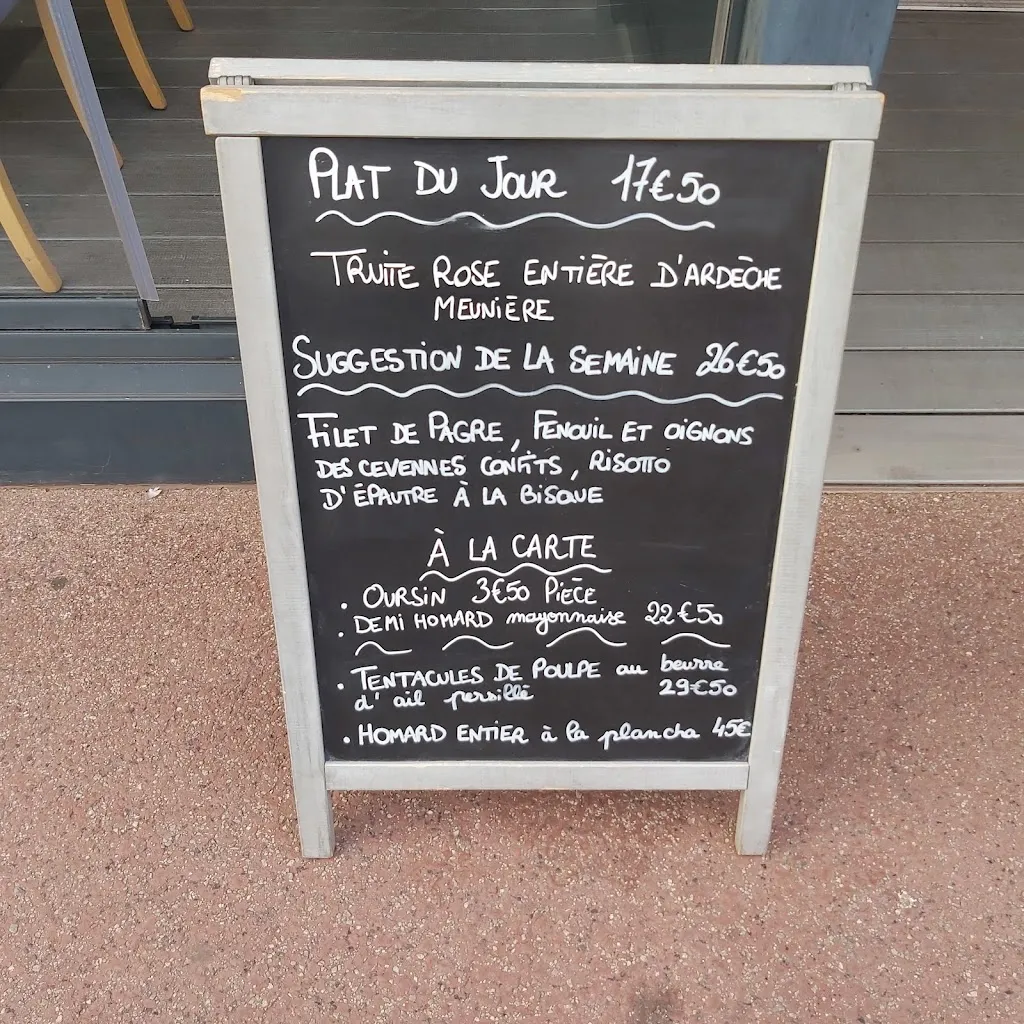 PLAT DU JOUR 17€50
TRUITE ROSE ENTIÈRE D'ARDÈCHE
MEUNIÈRE
SUGGESTION DE LA SEMAINE 26€50
FILET DE PAGRE, FENOUIL ET OIGNONS
DES CEVENNES CONFITS, RISOTTO
D'ÉPAUTRE À LA BISQUE
À LA CARTE
. OURSIN 3€50 PIÈCE
. DEMI HOMARD mayonnaise 22€50
. TENTACULES DE POULPE au beurre
d'ail persillé 29€50
. HOMARD ENTIER à la plancha 45€